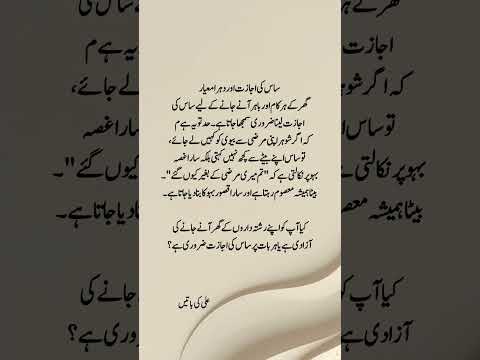 ساس کی اجازت اور دہرا معیار
گھر کے ہر کام اور باہر آنے جانے کے لیے ساس کی
اجازت لینا ضروری سمجھا جاتا ہے۔ حد تو یہ ہے
کہ اگر شوہر اپنی مرضی سے بیوی کو کہیں لے جائے،
تو ساس اپنے بیٹے سے کچھ نہیں کہتی بلکہ سارا غصہ
بہو پر نکالتی ہے کہ "تم میری مرضی کے بغیر کیوں گئے"۔
بیٹا ہمیشہ معصوم رہتا ہے اور سارا قصور بہو کا بنا دیا جاتا ہے۔
کیا آپ کو اپنے رشتہ داروں کے گھر آنے جانے کی
آزادی ہے یا ہر بات پر ساس کی اجازت ضروری ہے؟
علی کی باتیں